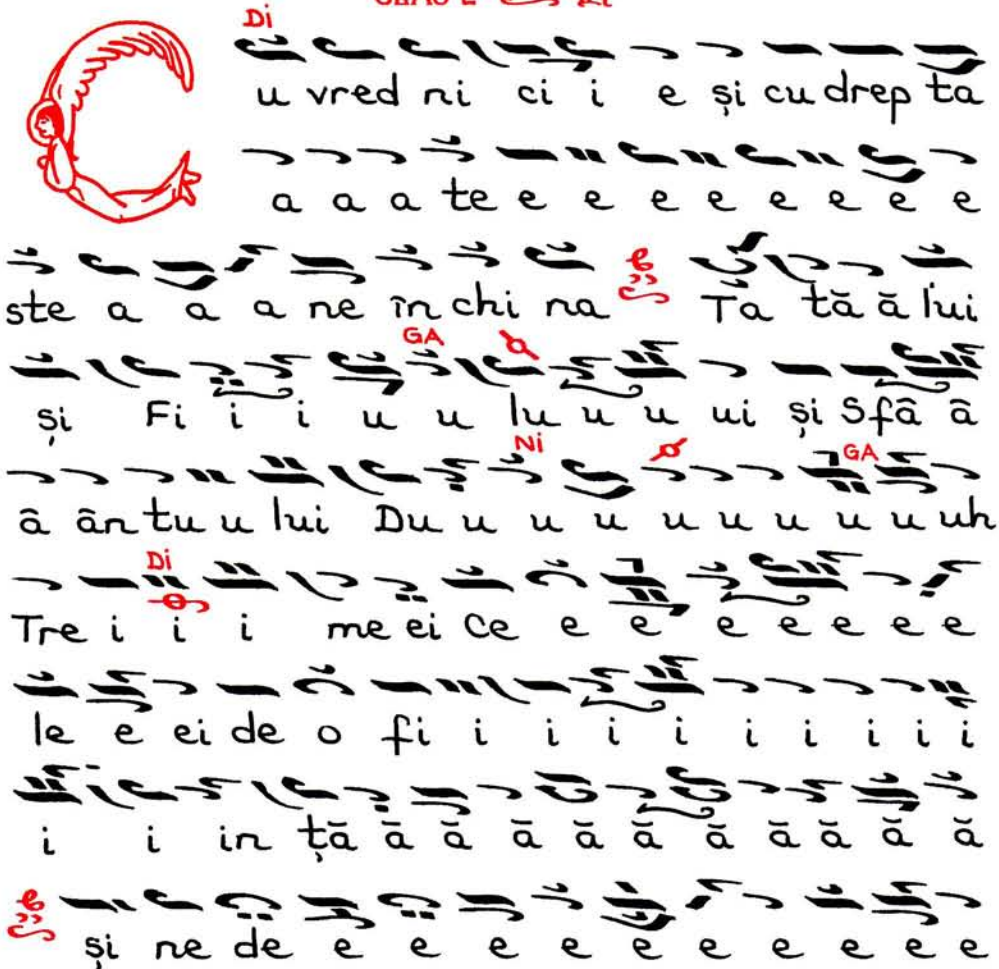 Di
C u vred ni ci i e și cu drep ta
a a a te e e e e e e e e
ste a a a ne în chi na Ta tă ă lui
GA
și Fi i i u u lu u u ui și Sfâ â
Ni GA
â ân tu u lui Du u u u u u u u uh
Di
Tre i i i me ei Ce e e e e e e e
le e ei de o fi i i i i i i i i i
i i in ță ă ă ă ă ă ă ă ă ă ă
și ne de e e e e e e e e e e